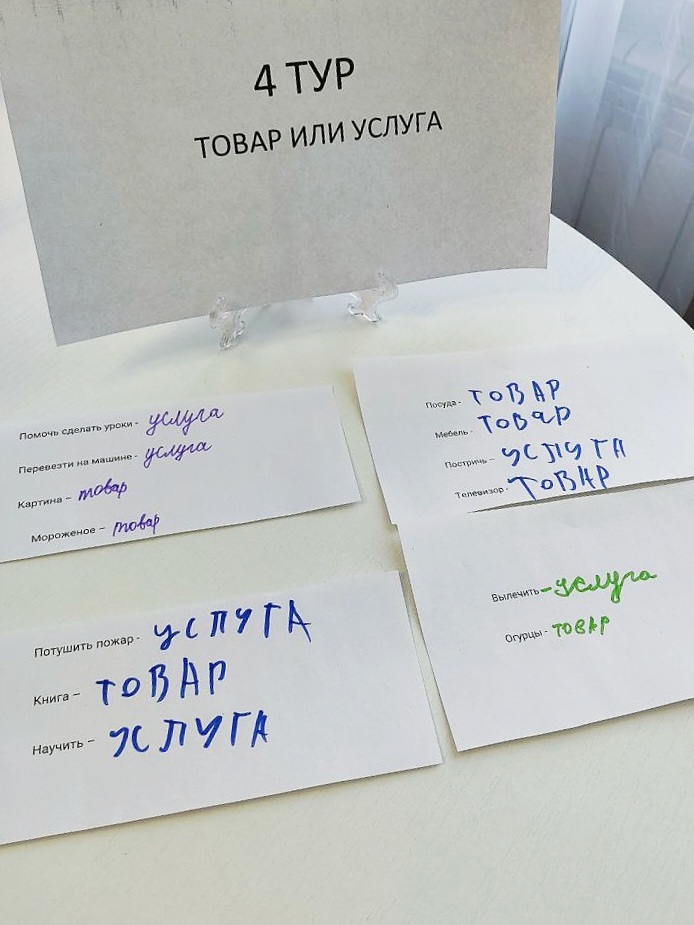 4 ТУР
ТОВАР ИЛИ УСЛУГА
Помочь сделать уроки - услуга
Перевезти на машине - услуга
Картина – товар
Мороженое – товар
Посуда - ТОВАР
Мебель - Товар
Постричь – УСЛУГА
Телевизор - ТОВАР
Потушить пожар - УСЛУГА
Книга – ТОВАР
Научить – УСЛУГА
Вылечить - услуга
Огурцы - ТОВАР